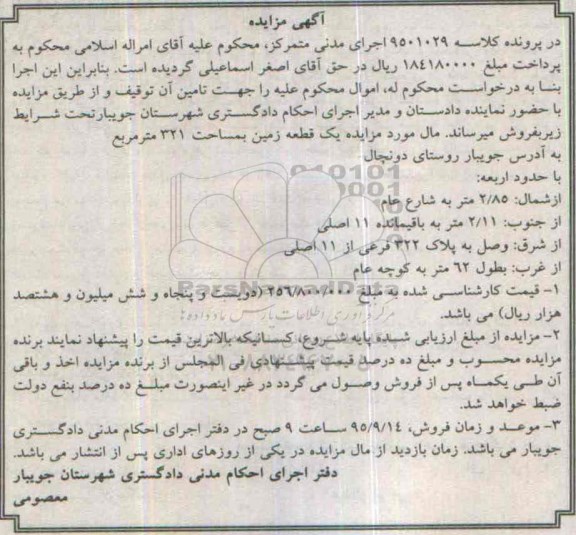 آگهی مزایده
در پرونده کلاسه ۹۵۰۱۰۲۹ اجرای مدنی متمرکز، محکوم علیه آقای امراله اسلامی محکوم به
پرداخت مبلغ ۱۸۴۱۸۰۰۰۰ ریال در حق آقای اصغر اسماعیلی گردیده است. بنابراین این اجرا
بنا به درخواست محکوم له، اموال محکوم علیه را جهت تامین آن توقیف و از طریق مزایده
با حضور نماینده دادستان و مدیر اجرای احکام دادگستری شهرستان جویبارتحت شرایط
زیربفروش میرساند. مال مورد مزایده یک قطعه زمین بمساحت ۳۲۱ مترمربع
به آدرس جویبار روستای دونچال
با حدود اربعه:
ازشمال: ۲/۸۵ متر به شارع عام
از جنوب: ۲/۱۱ متر به باقیمانده ۱۱ اصلی
از شرق: وصل به پلاک ۳۲۲ فرعی از ۱۱ اصلی
از غرب: بطول ۶۲ متر به کوچه عام
ParsNamadData
۱- قیمت کارشناسی شده به مبلغ ۲۵۶/۸۰۰/۰۰۰ (دویست و پنجاه و شش میلیون و هشتصد
هزار ریال) می باشد.
۲- مزایده از مبلغ ارزیابی شده پایه شروع، کسانیکه بالاترین قیمت را پیشنهاد نمایند برنده
مزایده محسوب و مبلغ ده درصد قیمت پیشنهادی فی المجلس از برنده مزایده اخذ و باقی
آن طی یکماه پس از فروش وصول می گردد در غیر اینصورت مبلغ ده درصد بنفع دولت
ضبط خواهد شد.
۳- موعد و زمان فروش، ۹۵/۹/۱۴ ساعت ۹ صبح در دفتر اجرای احکام مدنی دادگستری
جویبار می باشد. زمان بازدید از مال مزایده در یکی از روزهای اداری پس از انتشار می باشد.
دفتر اجرای احکام مدنی دادگستری شهرستان جویبار
معصومی